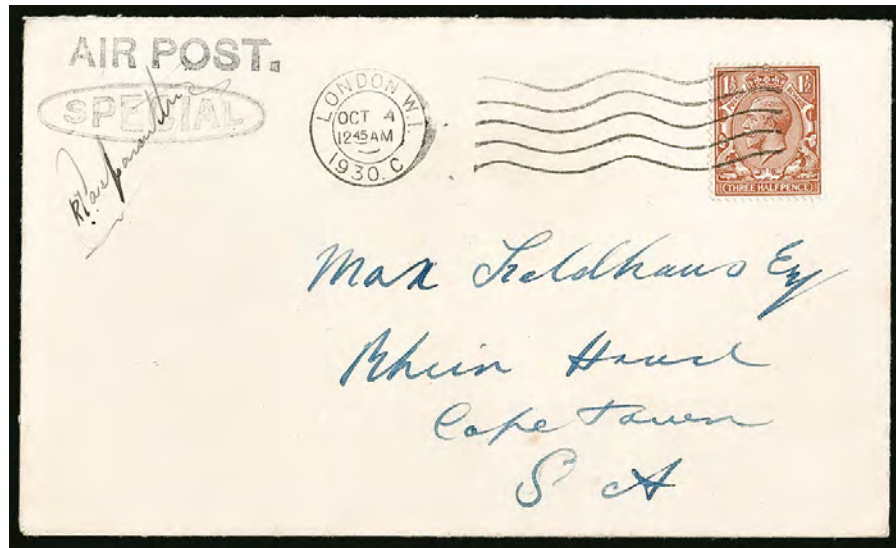 AIR POST.
SPECIAL
LONDON W.1.
OCT 4
12 45 AM
1930. C
1½ 1½
THREE HALFPENCE
Max Feldhaus Esq
Rhein
Cape Town
S A